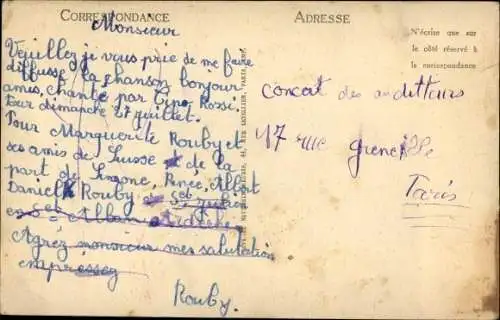 CORRESPONDANCE
Monsieur
Veuillez je vous prie de me faire
diffusse la chanson bonjour
amis, chanté par Tino Rossi.
Pour dimanche 27 juillet.
Pour Marguerite Rouby et
ses amis de Suisse de la
part de Simone, Renée, Albert
Daniel Rouby
en St Albans Ardèche
Agréz monsieur mes salutation
empréssez
Rouby.
ADRESSE
N'écrire que sur
le côté réservé à
la correspondance
concert des auditteurs
17 rue Grenelle
Paris